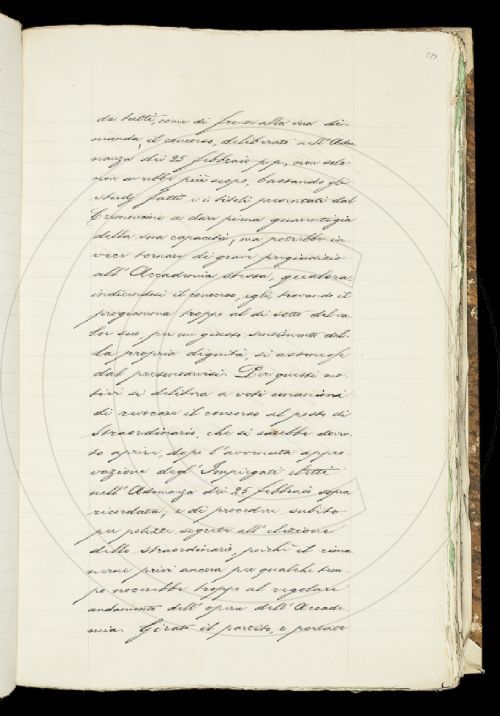 da tutti, come di fronte alla sua di-
manda, il concorso, deliberato nell'Adu
nanza dei 25 febbraio p.p., non solo
non avrebbe più scopo, bastando gli
studj fatti e i titoli presentati dal
a dare piena guarentigia
della sua capacità, ma potrebbe in-
vece tornare di grave pregiudizio
all'Accademia stessa, qualora,
indicendosi il concorso, egli, trovando il
programma troppo al di sotto del va-
lor suo, per un giusto sentimento del-
la propria dignità, si astenesse
dal presentarvisi. Per questi mo-
tivi si delibera a voti unanimi
di revocare il concorso al posto di
Straordinario, che si sarebbe dovu-
to aprire, dopo l'avvenuta appro-
vazione degl'Impiegati eletti
nell'Adunanza dei 25 febbraio sopra
ricordata, e di procedere subito
per polizze segrete all'elezione
dello straordinario, poichè il rima
nerne privi ancora per qualche tem
po nocerebbe troppo al regolare
andamento dell'opera dell'Accade-
mia. Girato il partito, e